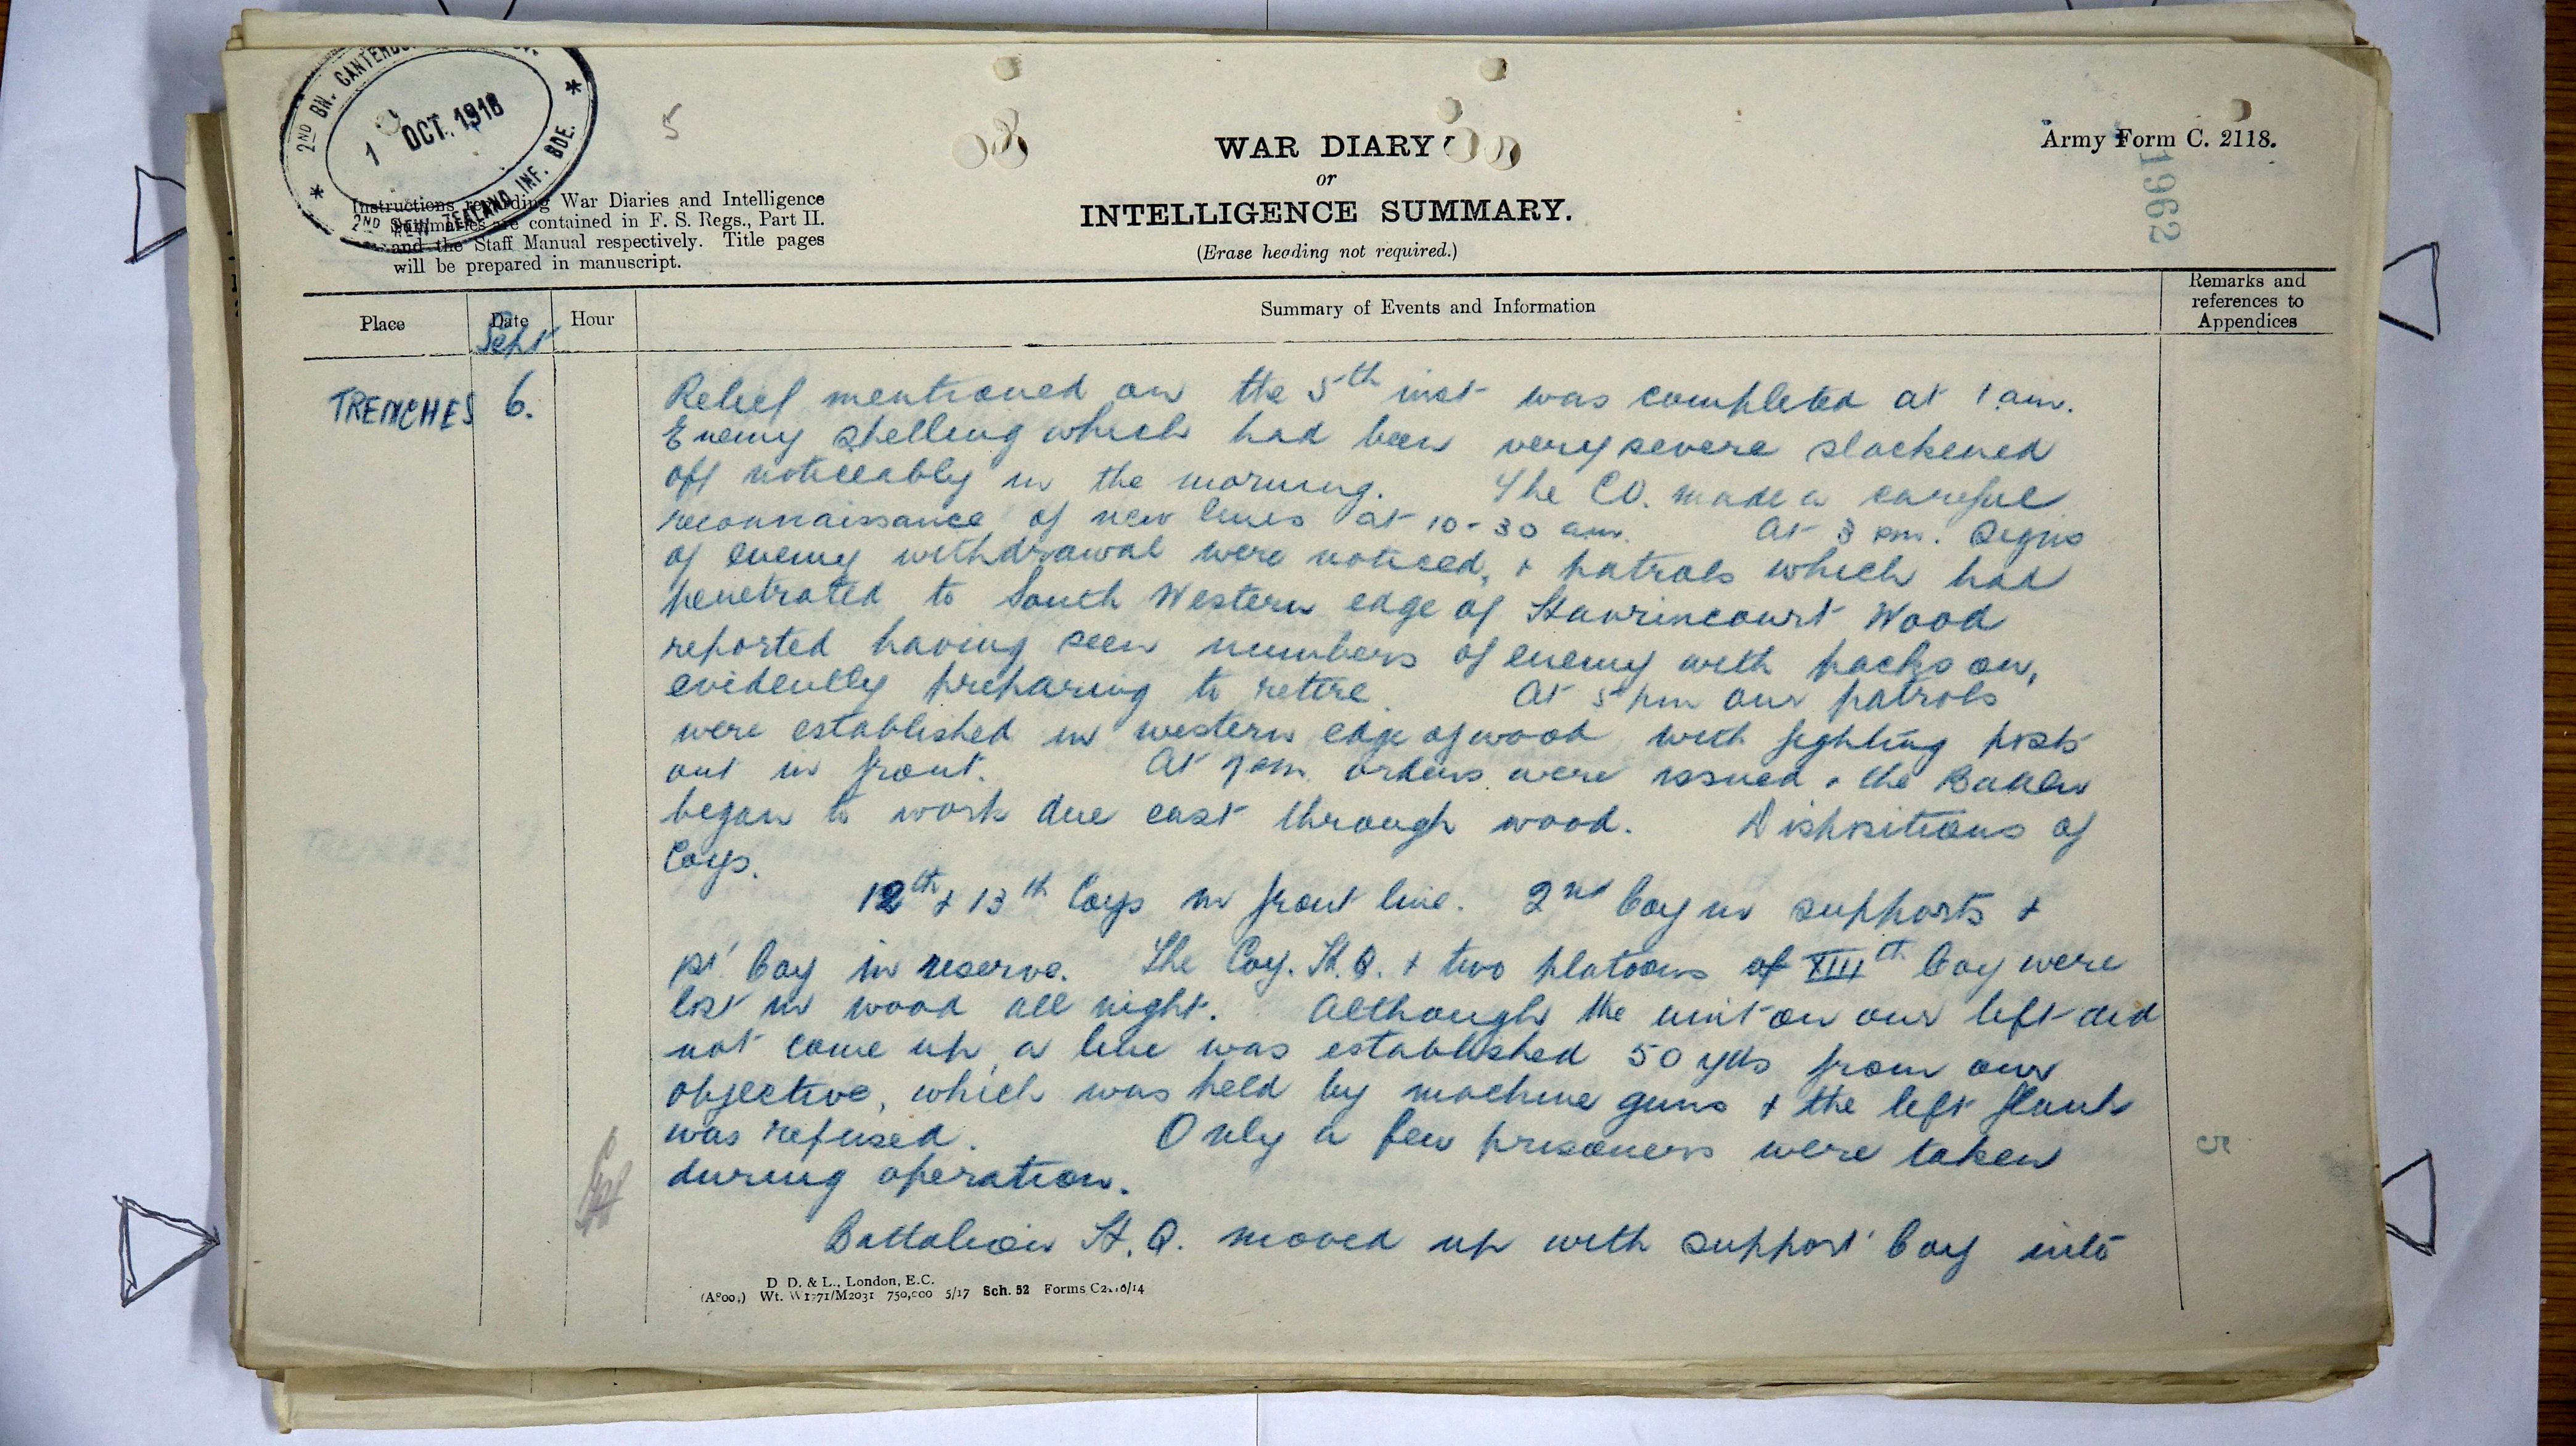 2ND BN. CANTERBU
1 OCT. 1918
2ND NEW ZEALAND INF. BDE.
5
WAR DIARY
or
INTELLIGENCE SUMMARY.
(Erase heading not required.)
Army Form C. 2118.
1962
Instructions regarding War Diaries and Intelligence
Summaries are contained in F. S. Regs., Part II.
and the Staff Manual respectively. Title pages
will be prepared in manuscript.
Place
Date
Hour
Summary of Events and Information
Remarks and
references to
Appendices
Sept
TRENCHES 6.
Relief mentioned on the 5th inst was completed at 1 am.
Enemy shelling which had been very severe slackened
off noticeably in the morning. The CO. made a careful
reconnaissance of new lines at 10-30 am. At 3 pm. signs
of enemy withdrawal were noticed, + patrols which had
penetrated to South Western edge of Havrincourt Wood
reported having seen numbers of enemy with packs on,
evidently preparing to retire. At 5 pm our patrols
were established in western edge of wood with fighting posts
out in front. At 7 pm. orders were issued + the Battn
began to work due east through wood. Dispositions of
Coys.
12th + 13th Coys in front line. 2nd Coy in supports +
1st Coy in reserve. The Coy. H.Q. + two platoons of XIIIth Coy were
lost in wood all night. Although the unit on our left did
not come up, a line was established 50 yds from our
objective, which was held by machine guns + the left flank
was refused. Only a few prisoners were taken
during operation.
Battalion H.Q. moved up with support Coy into
5
D. D. & L., London, E.C.
Wt. W1771/M2031 750,000 5/17 Sch. 52 Forms C2118/14